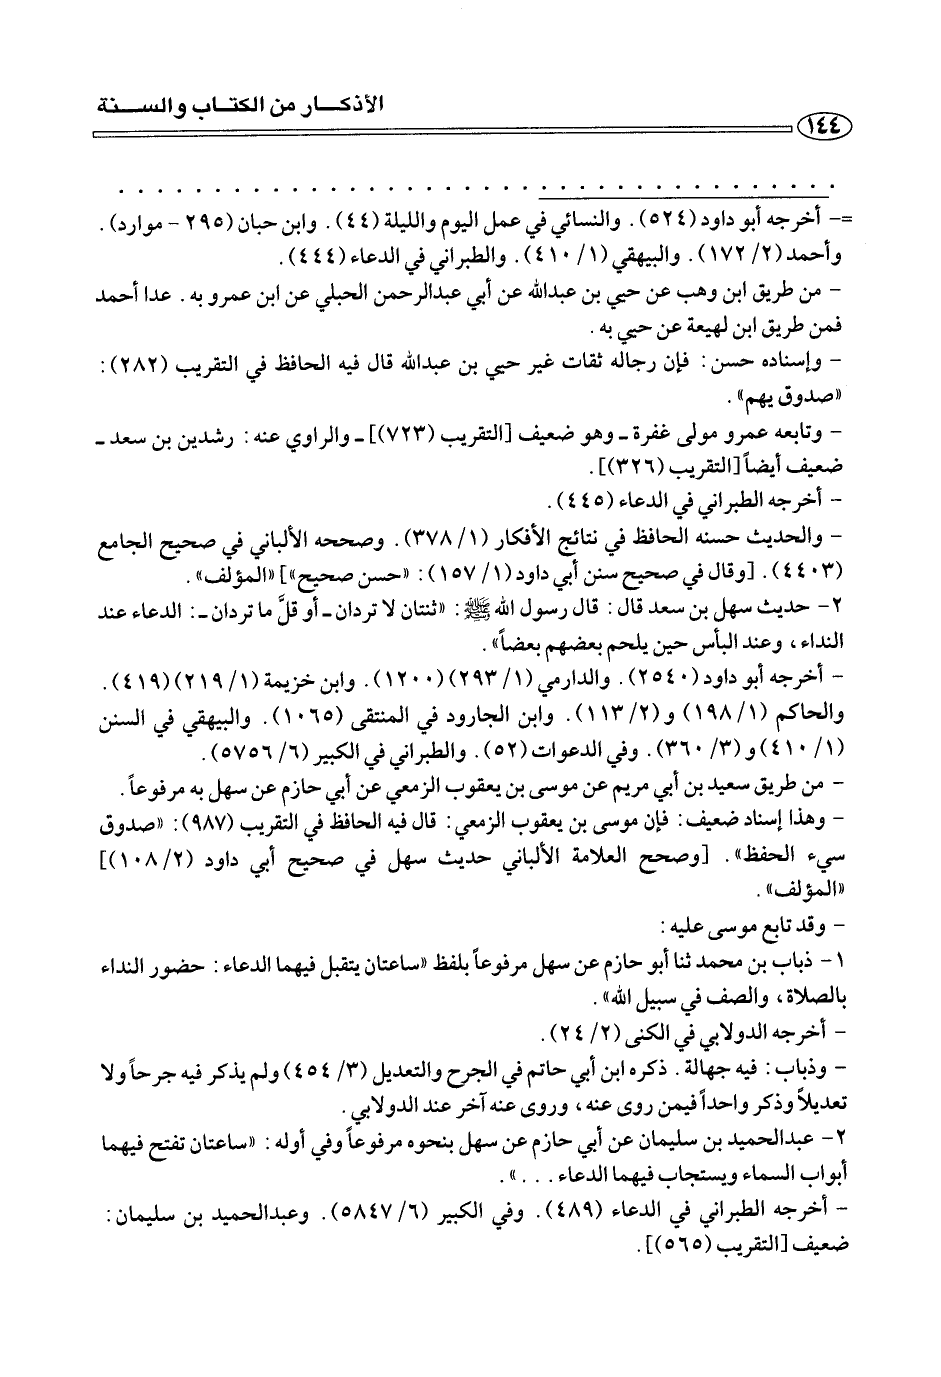 الأذكـــار من الكتـاب والســـنة
١٤٤
=- أخرجه أبو داود (٥٢٤). والنسائي في عمل اليوم والليلة (٤٤). وابن حبان (٢٩٥ - موارد).
وأحمد (٢/ ١٧٢). والبيهقي (١/ ٤١٠). والطبراني في الدعاء (٤٤٤).
- من طريق ابن وهب عن حيي بن عبدالله عن أبي عبدالرحمن الحبلي عن ابن عمرو به. عدا أحمد
فمن طريق ابن لهيعة عن حيي به.
- وإسناده حسن: فإن رجاله ثقات غير حيي بن عبدالله قال فيه الحافظ في التقريب (٢٨٢):
«صدوق يهم».
- وتابعه عمرو مولى غفرة ـ وهو ضعيف [التقريب (٧٢٣)] ـ والراوي عنه: رشدين بن سعد ـ
ضعيف أيضاً [التقريب (٣٢٦)].
- أخرجه الطبراني في الدعاء (٤٤٥).
- والحديث حسنه الحافظ في نتائج الأفكار (١/ ٣٧٨). وصححه الألباني في صحيح الجامع
(٤٤٠٣). [وقال في صحيح سنن أبي داود (١/ ١٥٧): «حسن صحيح»] «المؤلف».
٢- حديث سهل بن سعد قال: قال رسول الله ﷺ: «ثنتان لا تردان ـ أو قلَّ ما تردان ـ: الدعاء عند
النداء، وعند البأس حين يلحم بعضهم بعضاً».
- أخرجه أبو داود (٢٥٤٠). والدارمي (١/ ٢٩٣) (١٢٠٠). وابن خزيمة (١/ ٢١٩) (٤١٩).
والحاكم (١/ ١٩٨) و (٢/ ١١٣). وابن الجارود في المنتقى (١٠٦٥). والبيهقي في السنن
(١/ ٤١٠) و (٣/ ٣٦٠). وفي الدعوات (٥٢). والطبراني في الكبير (٦/ ٥٧٥٦).
- من طريق سعيد بن أبي مريم عن موسى بن يعقوب الزمعي عن أبي حازم عن سهل به مرفوعاً.
- وهذا إسناد ضعيف: فإن موسى بن يعقوب الزمعي: قال فيه الحافظ في التقريب (٩٨٧): «صدوق
سيء الحفظ». [وصحح العلامة الألباني حديث سهل في صحيح أبي داود (٢/ ١٠٨)]
«المؤلف».
- وقد تابع موسى عليه:
١- ذباب بن محمد ثنا أبو حازم عن سهل مرفوعاً بلفظ «ساعتان يتقبل فيهما الدعاء: حضور النداء
بالصلاة، والصف في سبيل الله».
- أخرجه الدولابي في الكنى (٢/ ٢٤).
- وذباب: فيه جهالة. ذكره ابن أبي حاتم في الجرح والتعديل (٣/ ٤٥٤) ولم يذكر فيه جرحاً ولا
تعديلاً وذكر واحداً فيمن روى عنه، وروى عنه آخر عند الدولابي.
٢- عبدالحميد بن سليمان عن أبي حازم عن سهل بنحوه مرفوعاً وفي أوله: «ساعتان تفتح فيهما
أبواب السماء ويستجاب فيهما الدعاء ...».
- أخرجه الطبراني في الدعاء (٤٨٩). وفي الكبير (٦/ ٥٨٤٧). وعبدالحميد بن سليمان:
ضعيف [التقريب (٥٦٥)].